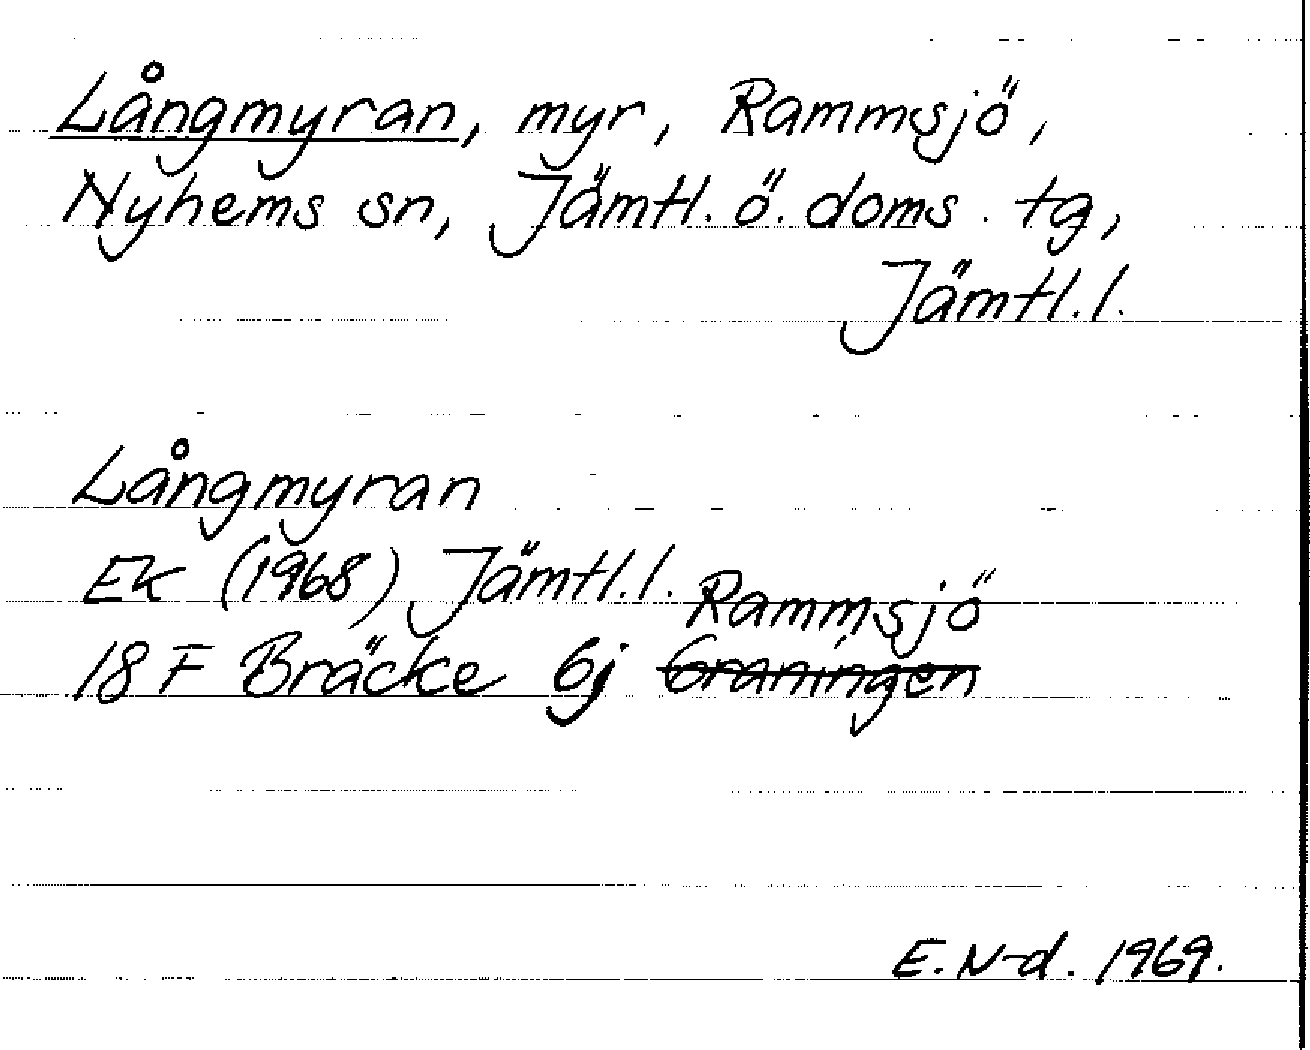 Långmyran, myr, Rammsjö,
Nyhems sn, Jämtl. ö. doms. tg,
Jämtl. l.
Långmyran
EK (1968) Jämtl. l.
Rammsjö
18 F Bräcke 6j Graningen
E. N-d. 1969.